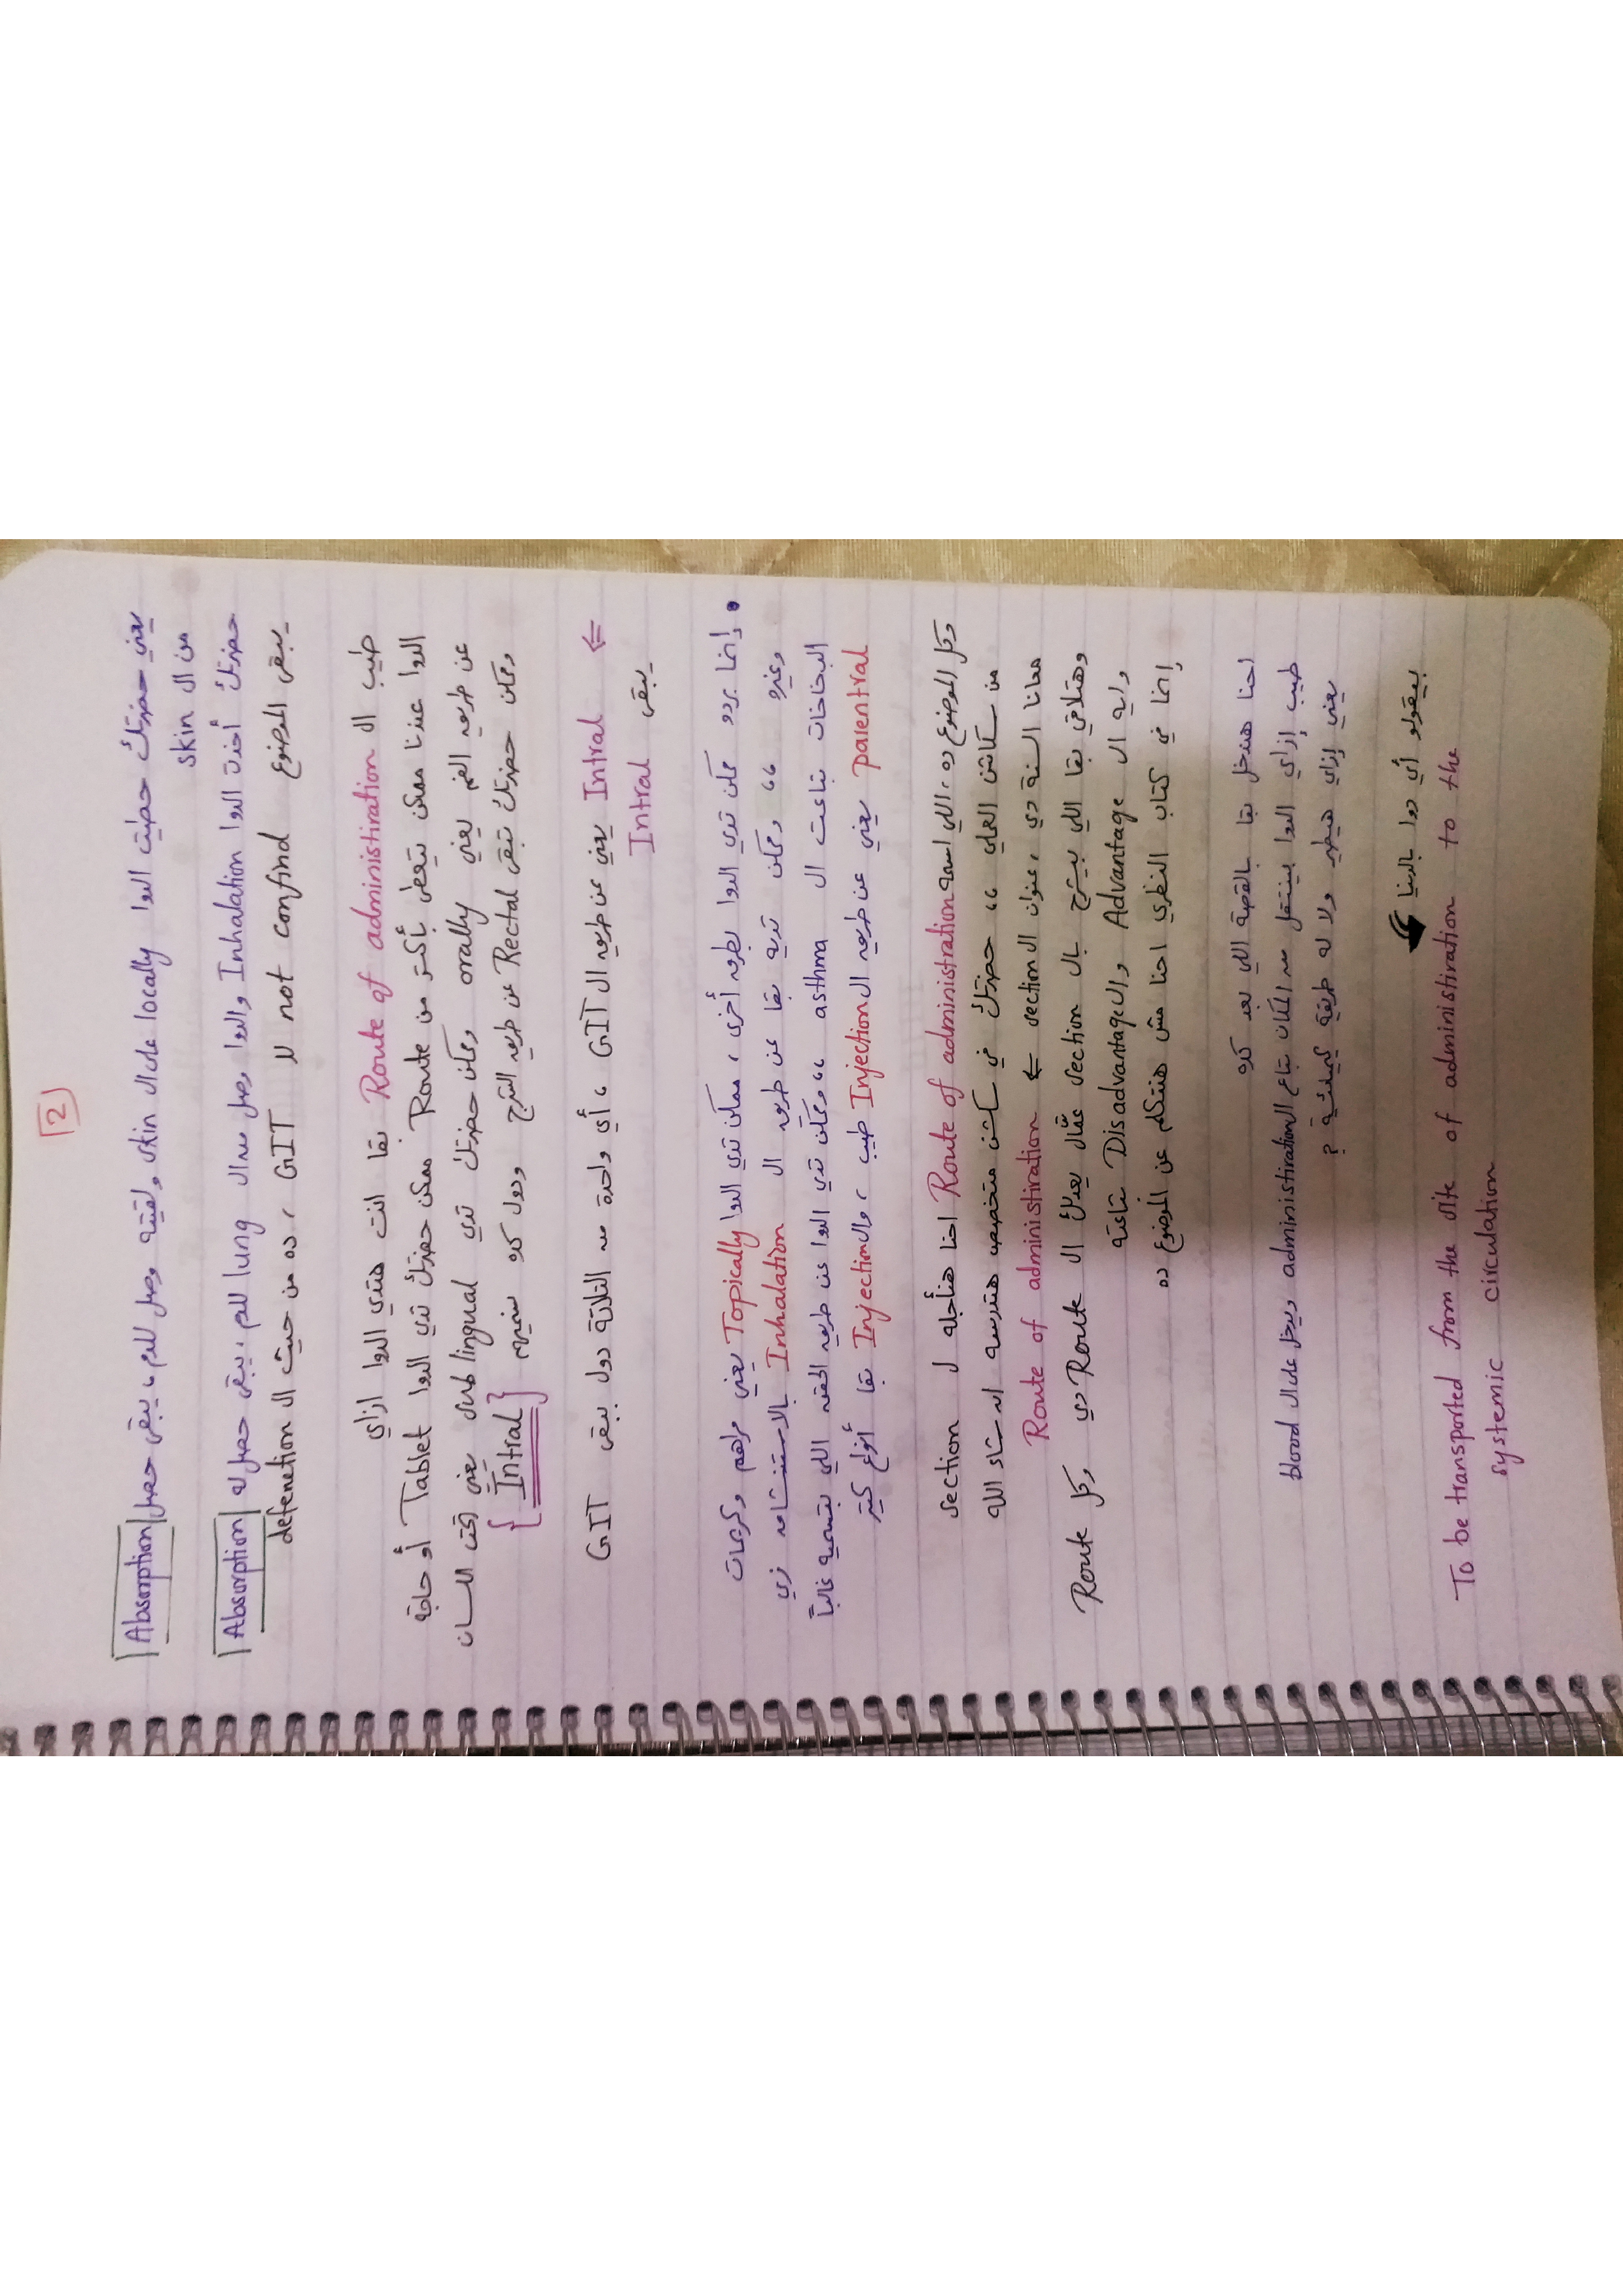 2
يعني حضرتك حطيت الدوا locally على ال skin ولقيته وصل للدم، يبقى حصل Absorption
من ال skin
حضرتك أخدت الدوا Inhalation والدوا وصل من ال lung للدم، يبقى حصل له Absorption
يبقى الموضوع not confind لل GIT، ده من حيث ال defenetion
طيب ال Route of administiration بقا انت هتدي الدوا ازاي
الدوا عندنا ممكن يتعطى بأكتر من Route ممكن حضرتك تدي الدوا Tablet أو حاجة
عن طريق الفم يعني orally وممكن حضرتك تدي sublingual يعني تحت اللسان
وممكن حضرتك تبقى Rectal عن طريق الشرج ودول كده نسميهم {Intral}
⇐ Intral يعني عن طريق ال GIT، أي واحدة من التلاتة دول يبقى GIT
يبقى Intral
• إنما بردو ممكن تدي الدوا بطرق أخرى، ممكن تدي الدوا Topically يعني مراهم وكريمات
وغيره ،، وممكن تديه بقا عن طريق ال Inhalation بالاستنشاق زي
البخاخات بتاعت ال asthma ،، وممكن تدي الدوا عن طريق الحقن اللي بنسميه غالباً
parentral يعني عن طريق ال Injection طيب، وال Injection بقا أنواع كتير
وكل الموضوع ده، اللي اسمه Route of administration احنا هنأجله ل section
من سكاشن العملي ،، حضرتك في سكشن متخصص هتدرسه ان شاء الله
معانا السنة دي، عنوان ال section ⇐ Route of administiration
وهتلاقي بقا اللي بيشرح بال section عمّال يعدلك ال Route دي وكل Route
وايه ال Advantage وال Disadvantage بتاعته
إنما في كتاب النظري احنا مش هنتكلم عن الموضوع ده
احنا هندخل بقا بالقصة اللي بعد كده
طيب إزاي الدوا بينتقل من المكان بتاع ال administiration ويدخل على ال blood
يعني إزاي هيطير ولا له طريقة كيميائية ؟
بيقولو أي دوا بالدنيا
To be transported from the site of administiration to the
systemic circulation